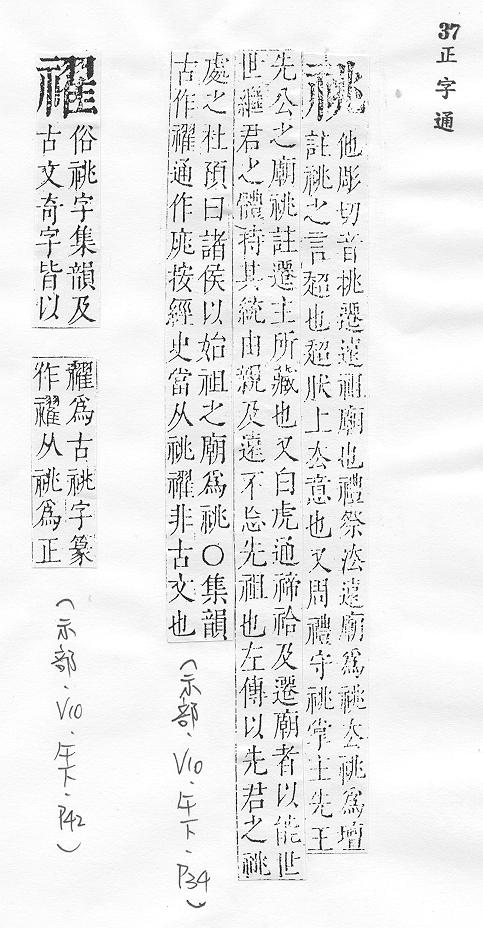 37
正字通
祧
他彫切音挑遷遠祖廟也禮祭法遠廟爲祧去祧爲壇
註祧之言超也超朕上去意也又周禮守祧掌主先王
先公之廟祧註遷主所藏也又白虎通禘祫及遷廟者以能世
世繼君之體持其統由親及遠不忘先祖也左傳以先君之祧
處之杜預曰諸侯以始祖之廟爲祧○集韻
古作禷通作庣按經史當从祧禷非古文也
(示部、V10、午下、P34)
禷
俗祧字集韻及
古文奇字皆以
禷爲古祧字篆
作禷从祧爲正
(示部、V10、午下、P42)